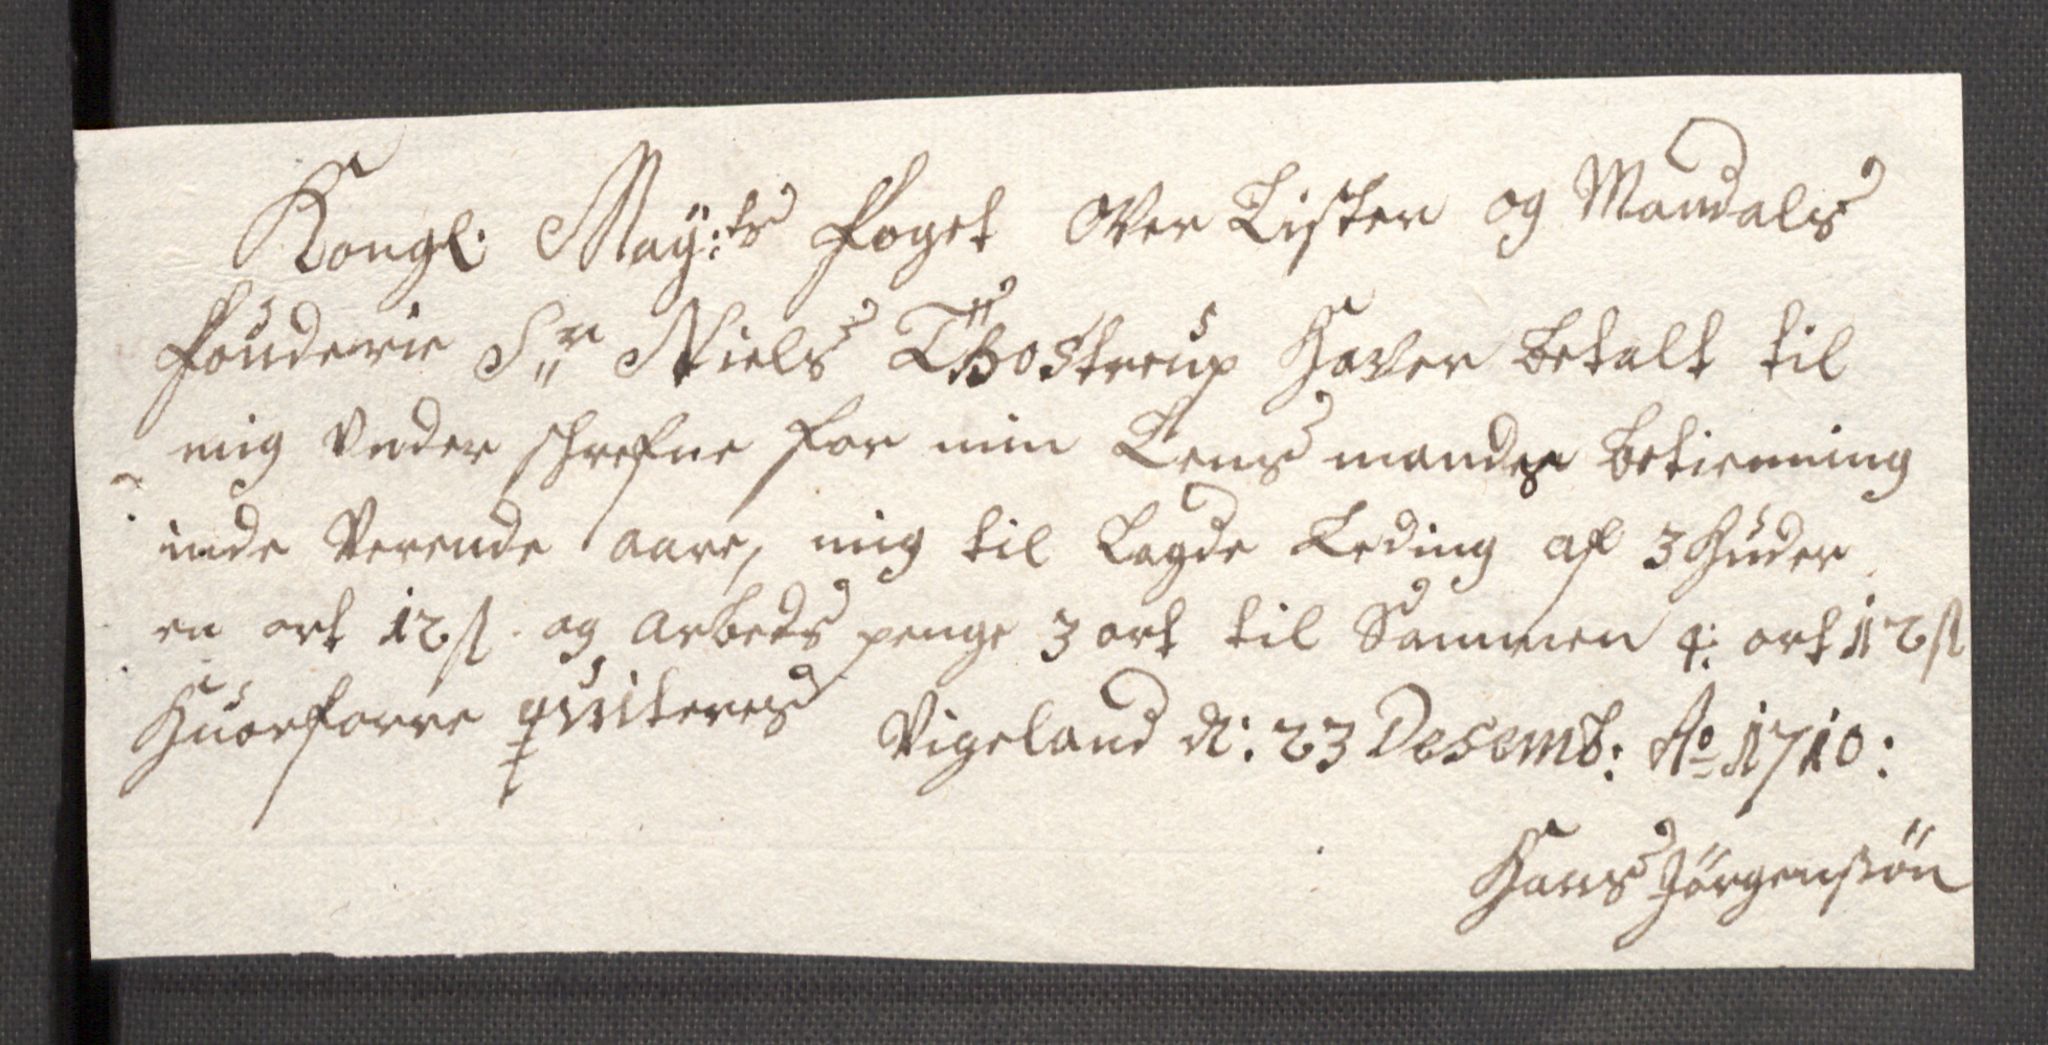 Kongl: Maÿ:ts foget over Lister og Mandals
fouderie Sr Niels Thostrup Haver betalt til
mig Under schrefne for min Lens mands betienning
inde Verende aare, mig til Lagde Leding af 3 Huder
en ort 12 s og arbeds penge 3 ort til Sammen 4: ort 12 s
Huorforre qviteres Vigeland d: 23 Desemb: Ao 1710:
Hans Jörgensön